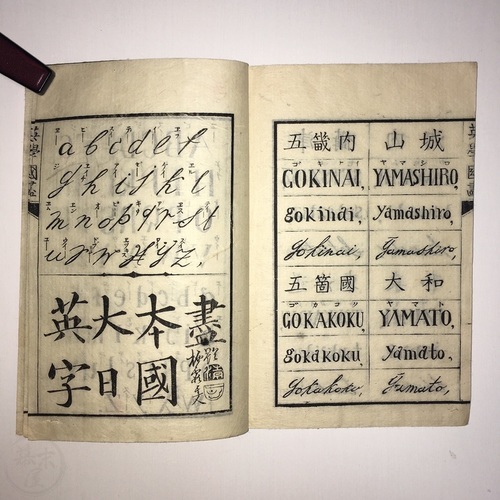 a b c d e f
g h i j k l
m n o p q r s t
u v w x y z.
盡
本國
大日
英字
五畿内 山城
ゴキナイ ヤマシロ
GOKINAI, YAMASHIRO,
gokinai, yamashiro,
Gokinai, Yamashiro,
五箇國 大和
ゴカコク ヤマト
GOKAKOKU, YAMATO,
gokakoku, yamato,
Gokakoku, Yamato,